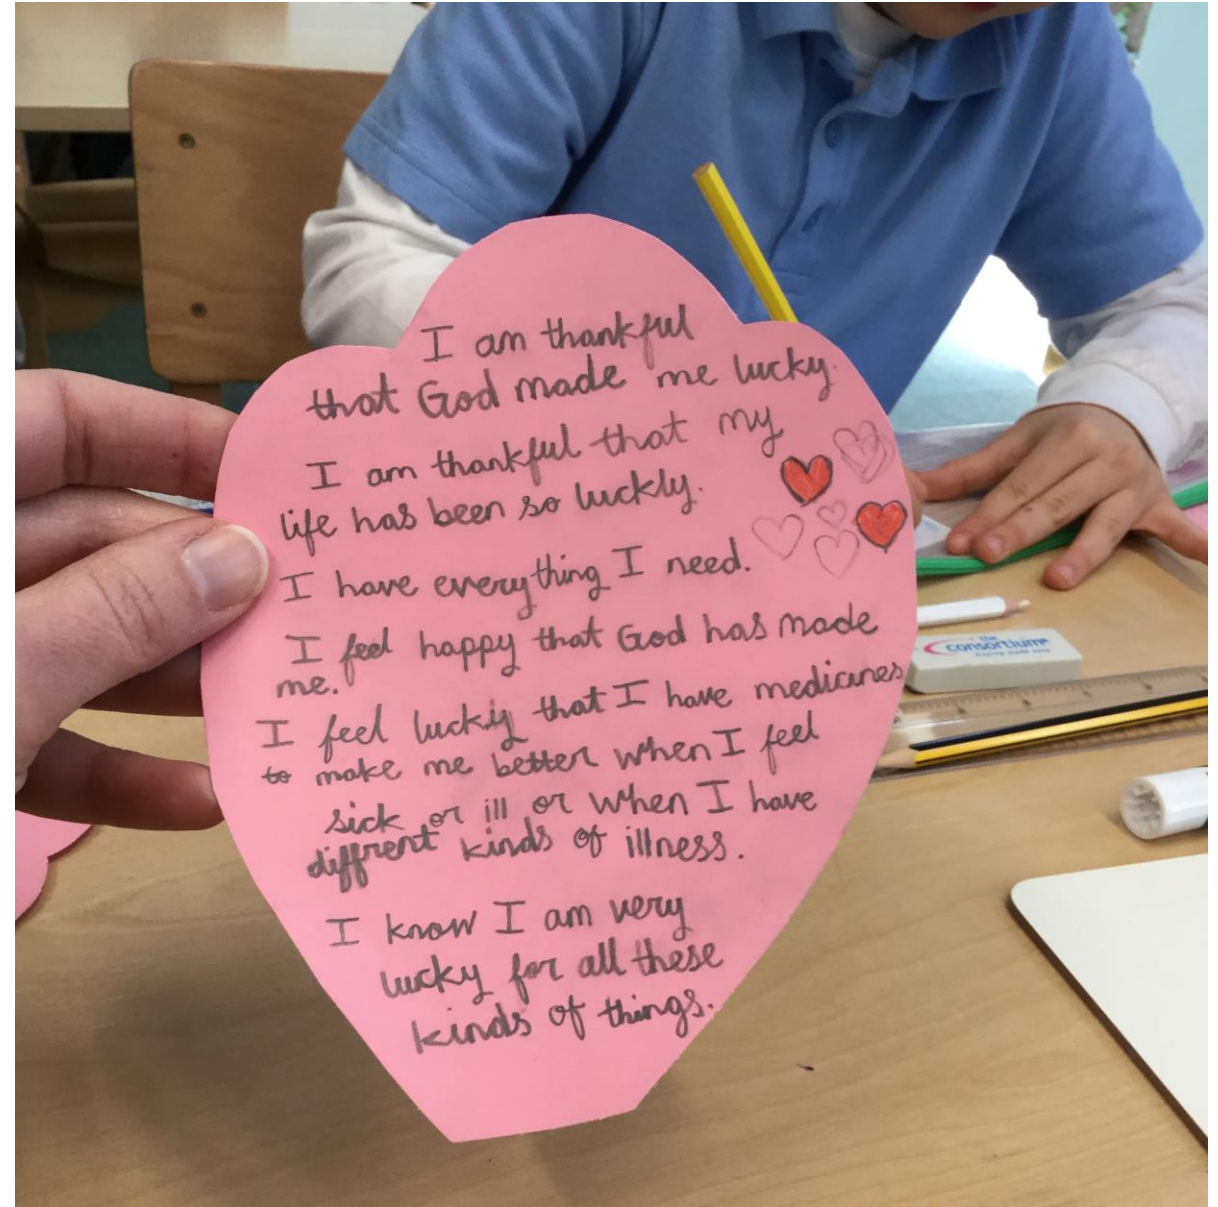 I am thankful
that God made me lucky.
I am thankful that my
life has been so luckly.
I have everything I need.
I feel happy that God has made
me.
I feel lucky that I have medicines
to make me better when I feel
sick or ill or when I have
diffrent kinds of illness.
I know I am very
lucky for all these
kinds of things.
the
consortium